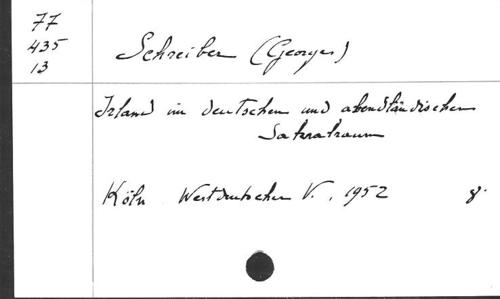 77
435
13
Schreiber (Georges)
Irland im deutschen und abendländischen
Sakralraum
Köln Westdeutscher V., 1952 8°